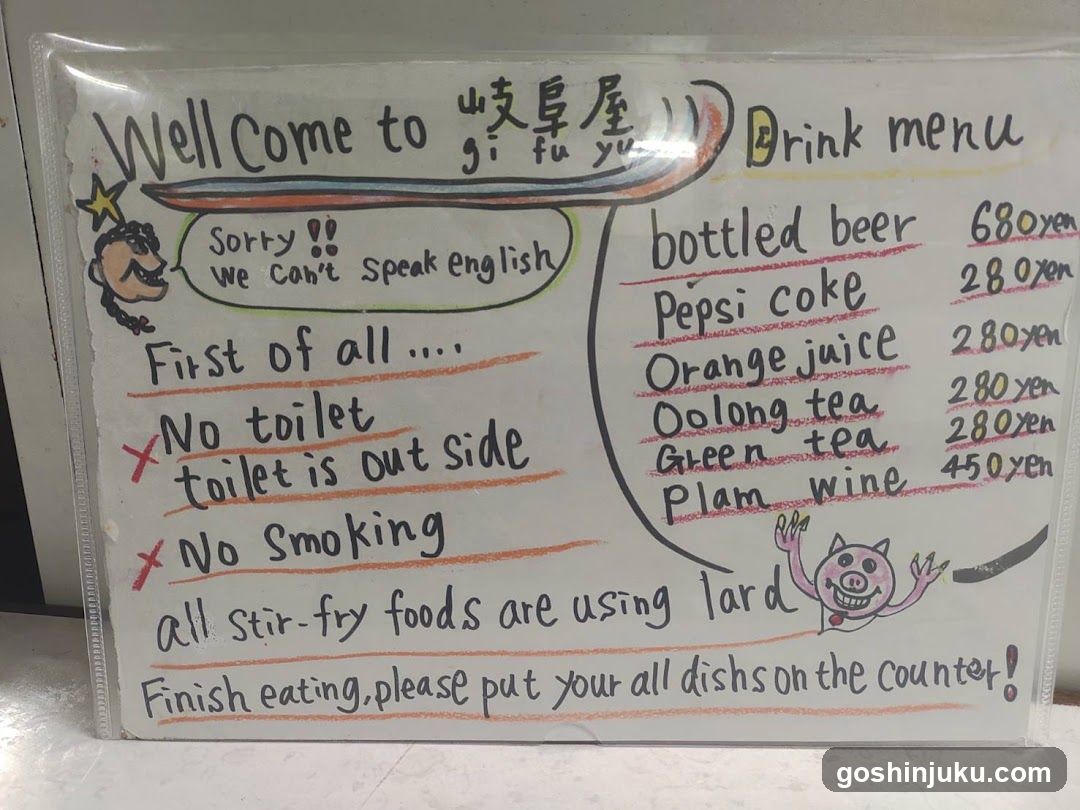 Well Come to 岐阜屋
gi fu ya
Sorry!!
We Can't speak english
First of all....
No toilet
toilet is out side
No Smoking
all stir-fry foods are using lard
Finish eating, please put your all dishs on the counter!
Drink menu
bottled beer 680yen
Pepsi coke 280yen
Orange juice 280yen
Oolong tea 280yen
Green tea 280yen
Plam wine 450yen
goshinjuku.com